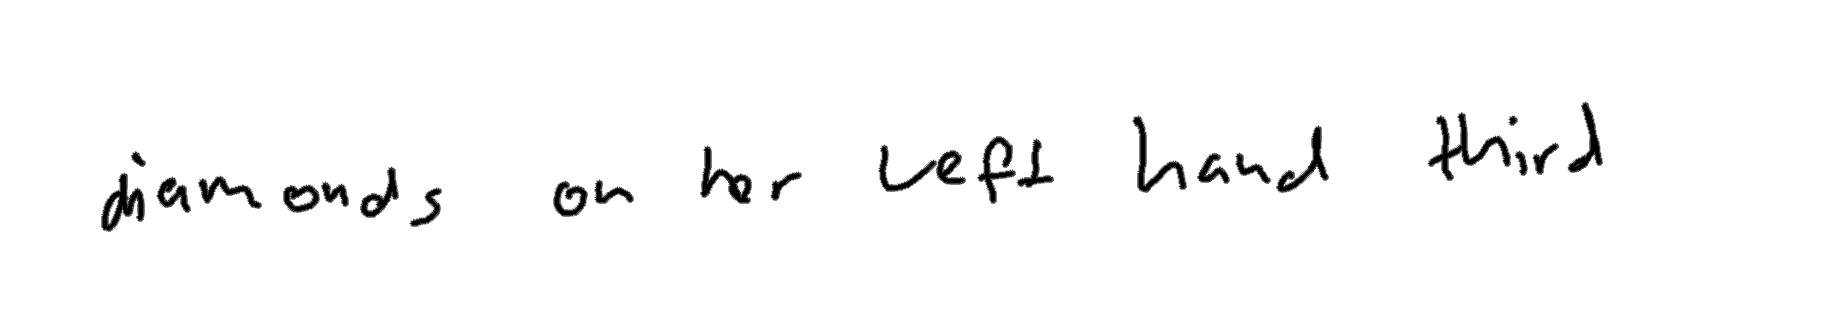 diamonds on her left hand third